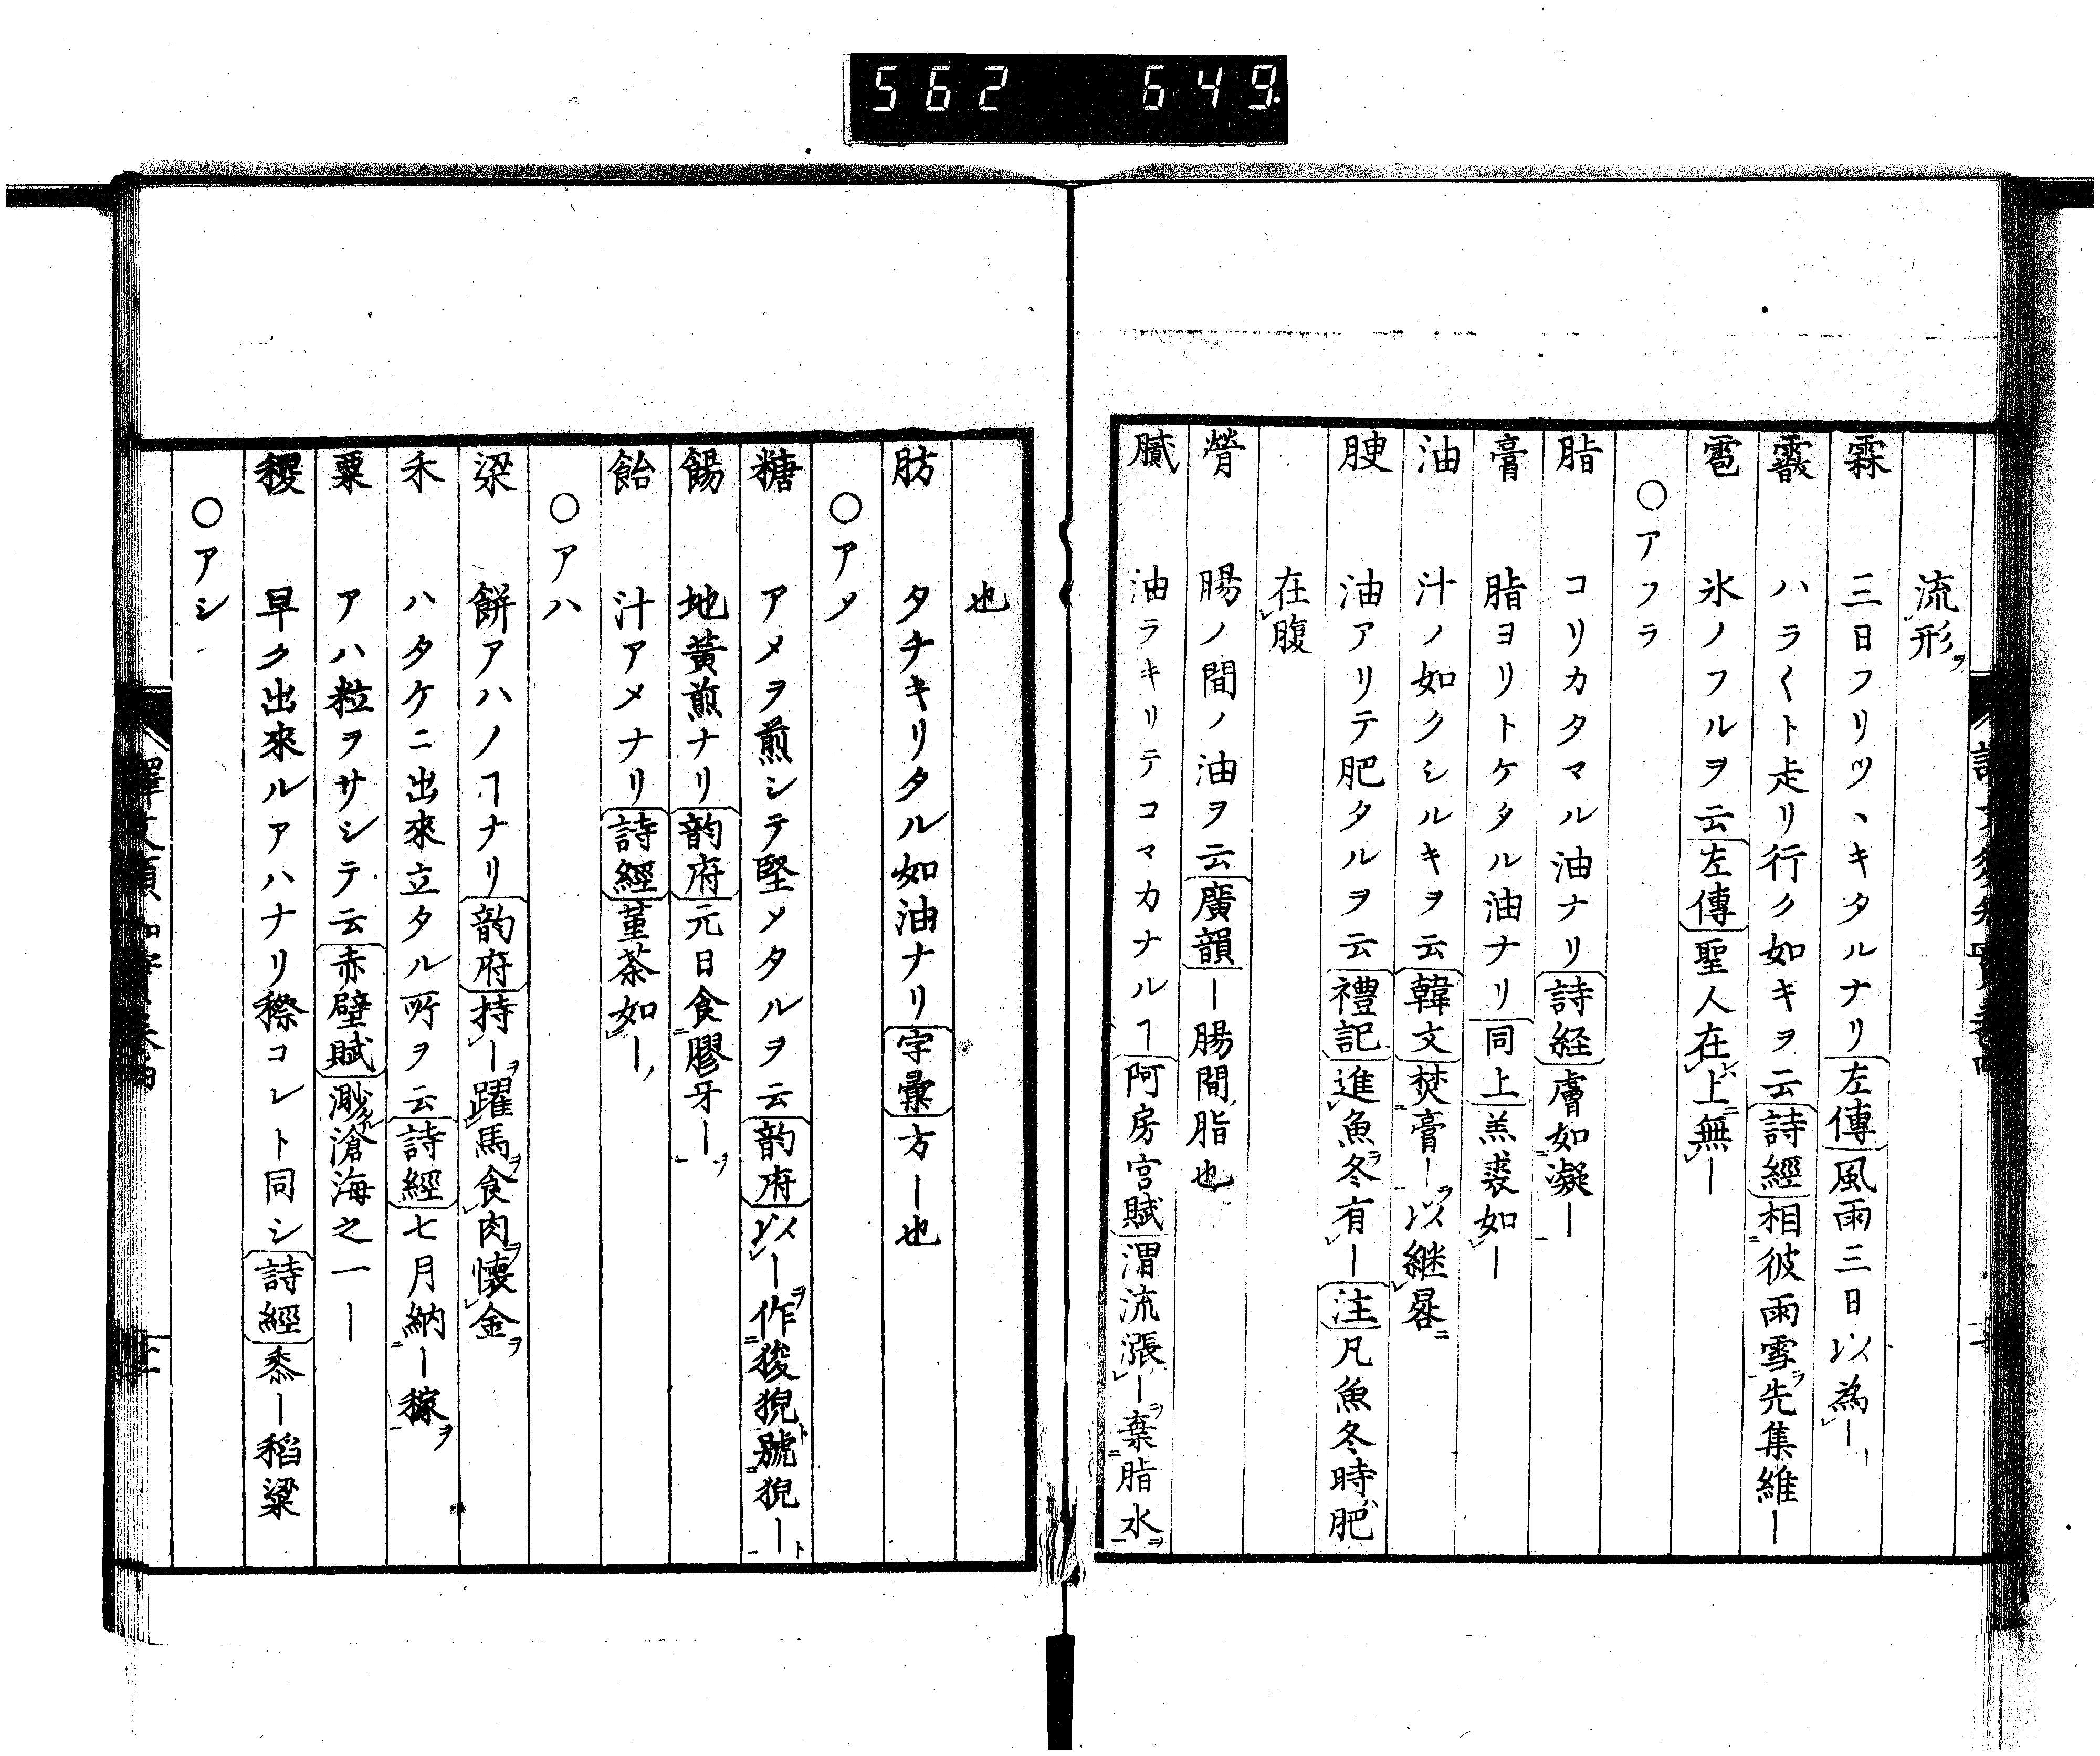 562 649.
流形ヲ
霖 三日フリツヽキタルナリ左傳風雨三日以為ー
霰 ハラ〱ト走リ行ク如キヲ云詩經相彼雨雪先集維ー
雹 氷ノフルヲ云左傳聖人在上無ー
○アフラ
脂 コリカタマル油ナリ詩経膚如凝ー
膏 脂ヨリトケタル油ナリ同上羔裘如ー
油 汁ノ如クシルキヲ云韓文焚膏ー以継晷
腴 油アリテ肥タルヲ云禮記進魚冬有ー注凡魚冬時肥
在腹
膋 腸ノ間ノ油ヲ云廣韻ー腸間脂也
膩 油ラキリテコマカナルヿ阿房宮賦渭流漲ー棄脂水
也
肪 タチキリタル如油ナリ字彙方ー也
○アメ
糖 アメヲ煎シテ堅メタルヲ云韵府以ー作狻猊號猊ー
餳 地黄煎ナリ韵府元日食膠牙ー
飴 汁アメナリ詩經菫荼如ー
○アハ
粱 餅アハノヿナリ韵府持ー躍馬食肉懐金
禾 ハタケニ出來立タル所ヲ云詩經七月納ー稼
粟 アハ粒ヲサシテ云赤壁賦渺滄海之一ー
稷 早ク出來ルアハナリ穄コレト同シ詩經黍ー稻粱
○アシ